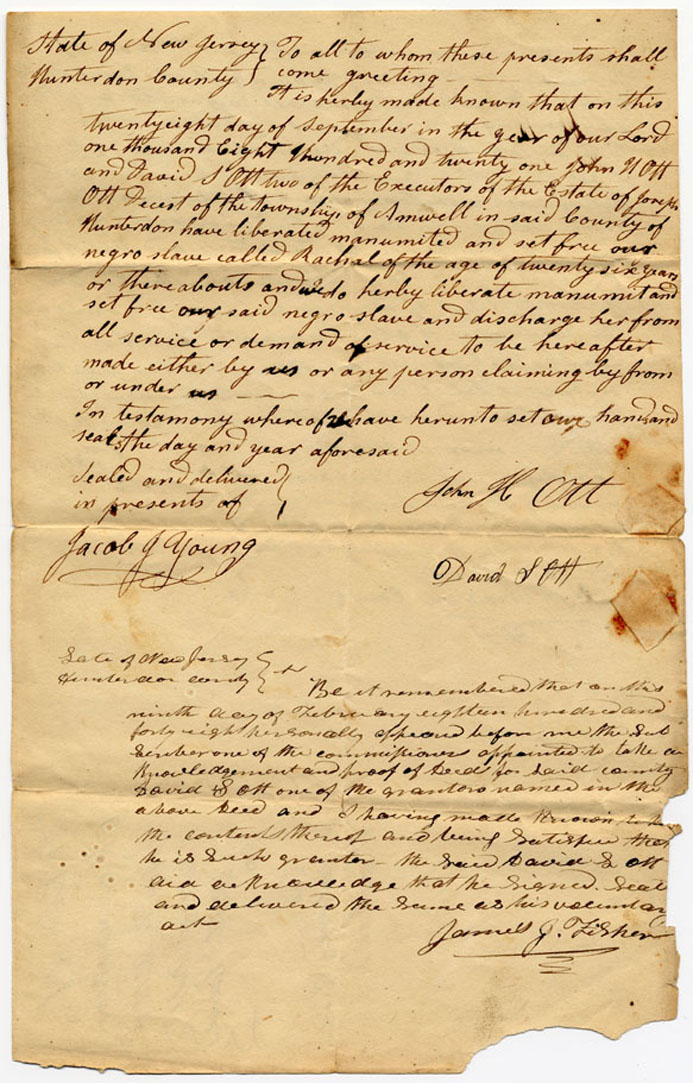 State of New Jersey } To all to whom these presents shall
Hunterdon County } come greeting
It is herby made known that on this
twentyeight day of September in the year of our Lord
one thousand Eight Hundred and twenty one John H Ott
and David S Ott two of the Executors of the Estate of Joseph
Ott Decest of the township of Amwell in said County of
Hunterdon have liberated manumited and set free our
negro slave called Rachal of the age of twenty six years
or thereabouts and we do herby liberate manumit and
set free our said negro slave and discharge her from
all service or demand of service to be hereafter
made either by us or any person claiming by from
or under us
In testamony whereof we have herunto set our hands and
seals the day and year aforesaid
Sealed and delivered }
in presents of }
John H Ott
Jacob J Young
David S Ott
State of New Jersey }
Hunterdon County } ss
Be it remembered that on this
ninth day of February eighteen hundred and
forty eight personally appeard before me the Sub
scriber one of the commissioners appointed to take ac
knowledgement and proof of Deed for said county
David S Ott one of the grantors named in the
above Deed and I having made known to him
the contents thereof and being satisfied that
he is such granter the said David S Ott
did acknowledge that he signed. Seal
and delivered the same as his voluntary
act
James J. Fisher